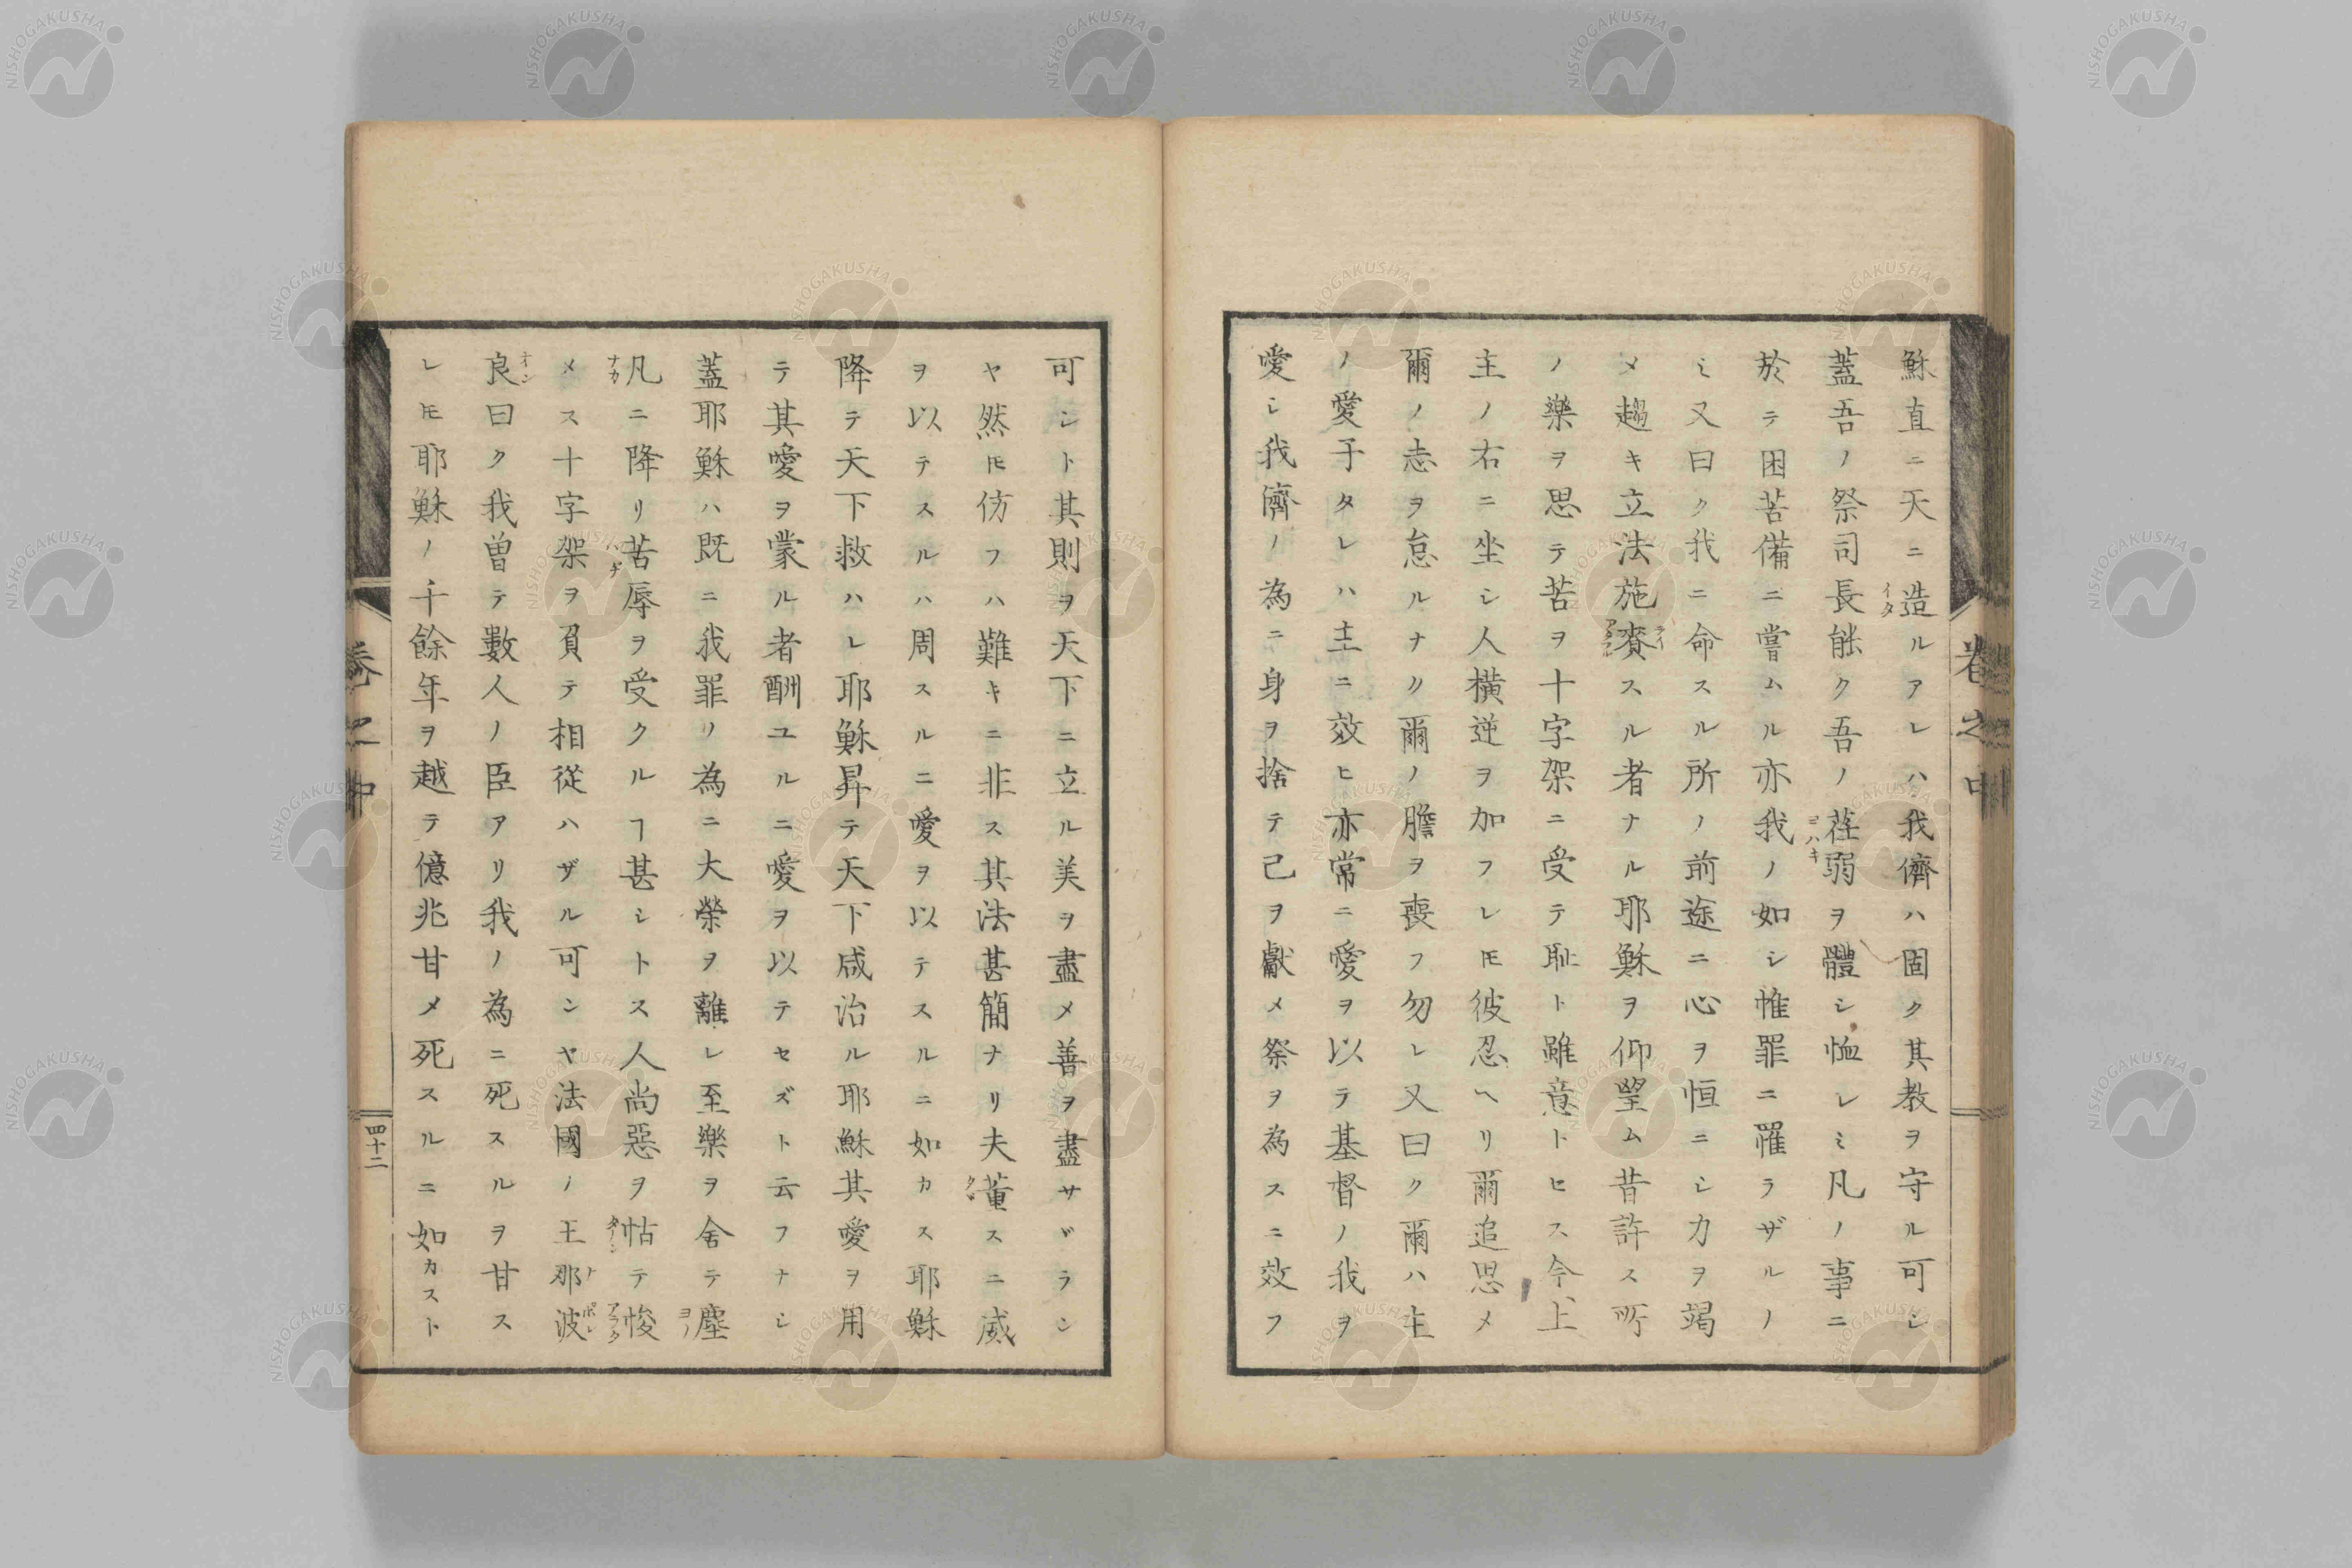 穌直ニ天ニ造ルアレハ我儕ハ固ク其教ヲ守ル可シ
蓋吾ノ祭司長能ク吾ノ荏弱ヲ體シ恤レミ凡ノ事ニ
於テ困苦備ニ嘗ムル亦我ノ如シ惟罪ニ罹ラザルノ
ミ又曰ク我ニ命スル所ノ前途ニ心ヲ恒ニシ力ヲ竭
メ趨キ立法施賚スル者ナル耶穌ヲ仰望ム昔許ス所
ノ樂ヲ思テ苦ヲ十字架ニ受テ耻ト雖意トヒス今上
主ノ右ニ坐シ人橫逆ヲ加フレ𪜈彼忍ヘリ爾追思メ
爾ノ志ヲ怠ルナクリ爾ノ膽ヲ喪フ勿レ又曰ク爾ハ主
ノ愛子タレハ主ニ效ヒ亦常ニ愛ヲ以テ基督ノ我ヲ
愛シ我儕ノ為ニ身ヲ捨テ己ヲ獻メ祭ヲ為スニ效フ
卷之中
可シト其則ヲ天下ニ立ル美ヲ盡メ善ヲ盡サヾラン
ヤ然𪜈仿フハ難キニ非ス其法甚簡ナリ夫董スニ威
ヲ以テスルハ周スルニ愛ヲ以テスルニ如カス耶穌
降テ天下救ハレ耶穌昇テ天下咸治ル耶穌其愛ヲ用
テ其愛ヲ蒙ル者酬ユルニ愛ヲ以テセズト云フナシ
蓋耶穌ハ既ニ我罪リ為ニ大榮ヲ離レ至樂ヲ舍テ塵
凡ニ降リ苦辱ヲ受クルヿ甚シトス人尚惡ヲ怙テ悛
メス十字架ヲ負テ相從ハザル可ンヤ法國ノ王那波
良曰ク我曽テ數人ノ臣アリ我ノ為ニ死スルヲ甘ス
レ𪜈耶穌ノ千餘年ヲ越テ億兆甘メ死スルニ如カスト
卷之中
四十二